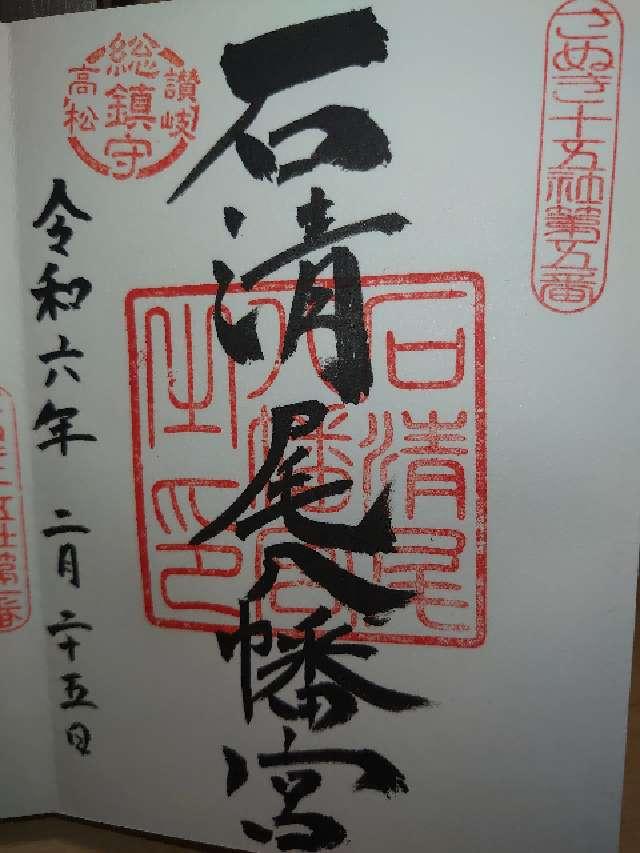 さぬき十五社第五番
石清尾八幡宮
石清尾
八幡宮
之印
讃岐
総鎮守
高松
令和六年 二月二十五日